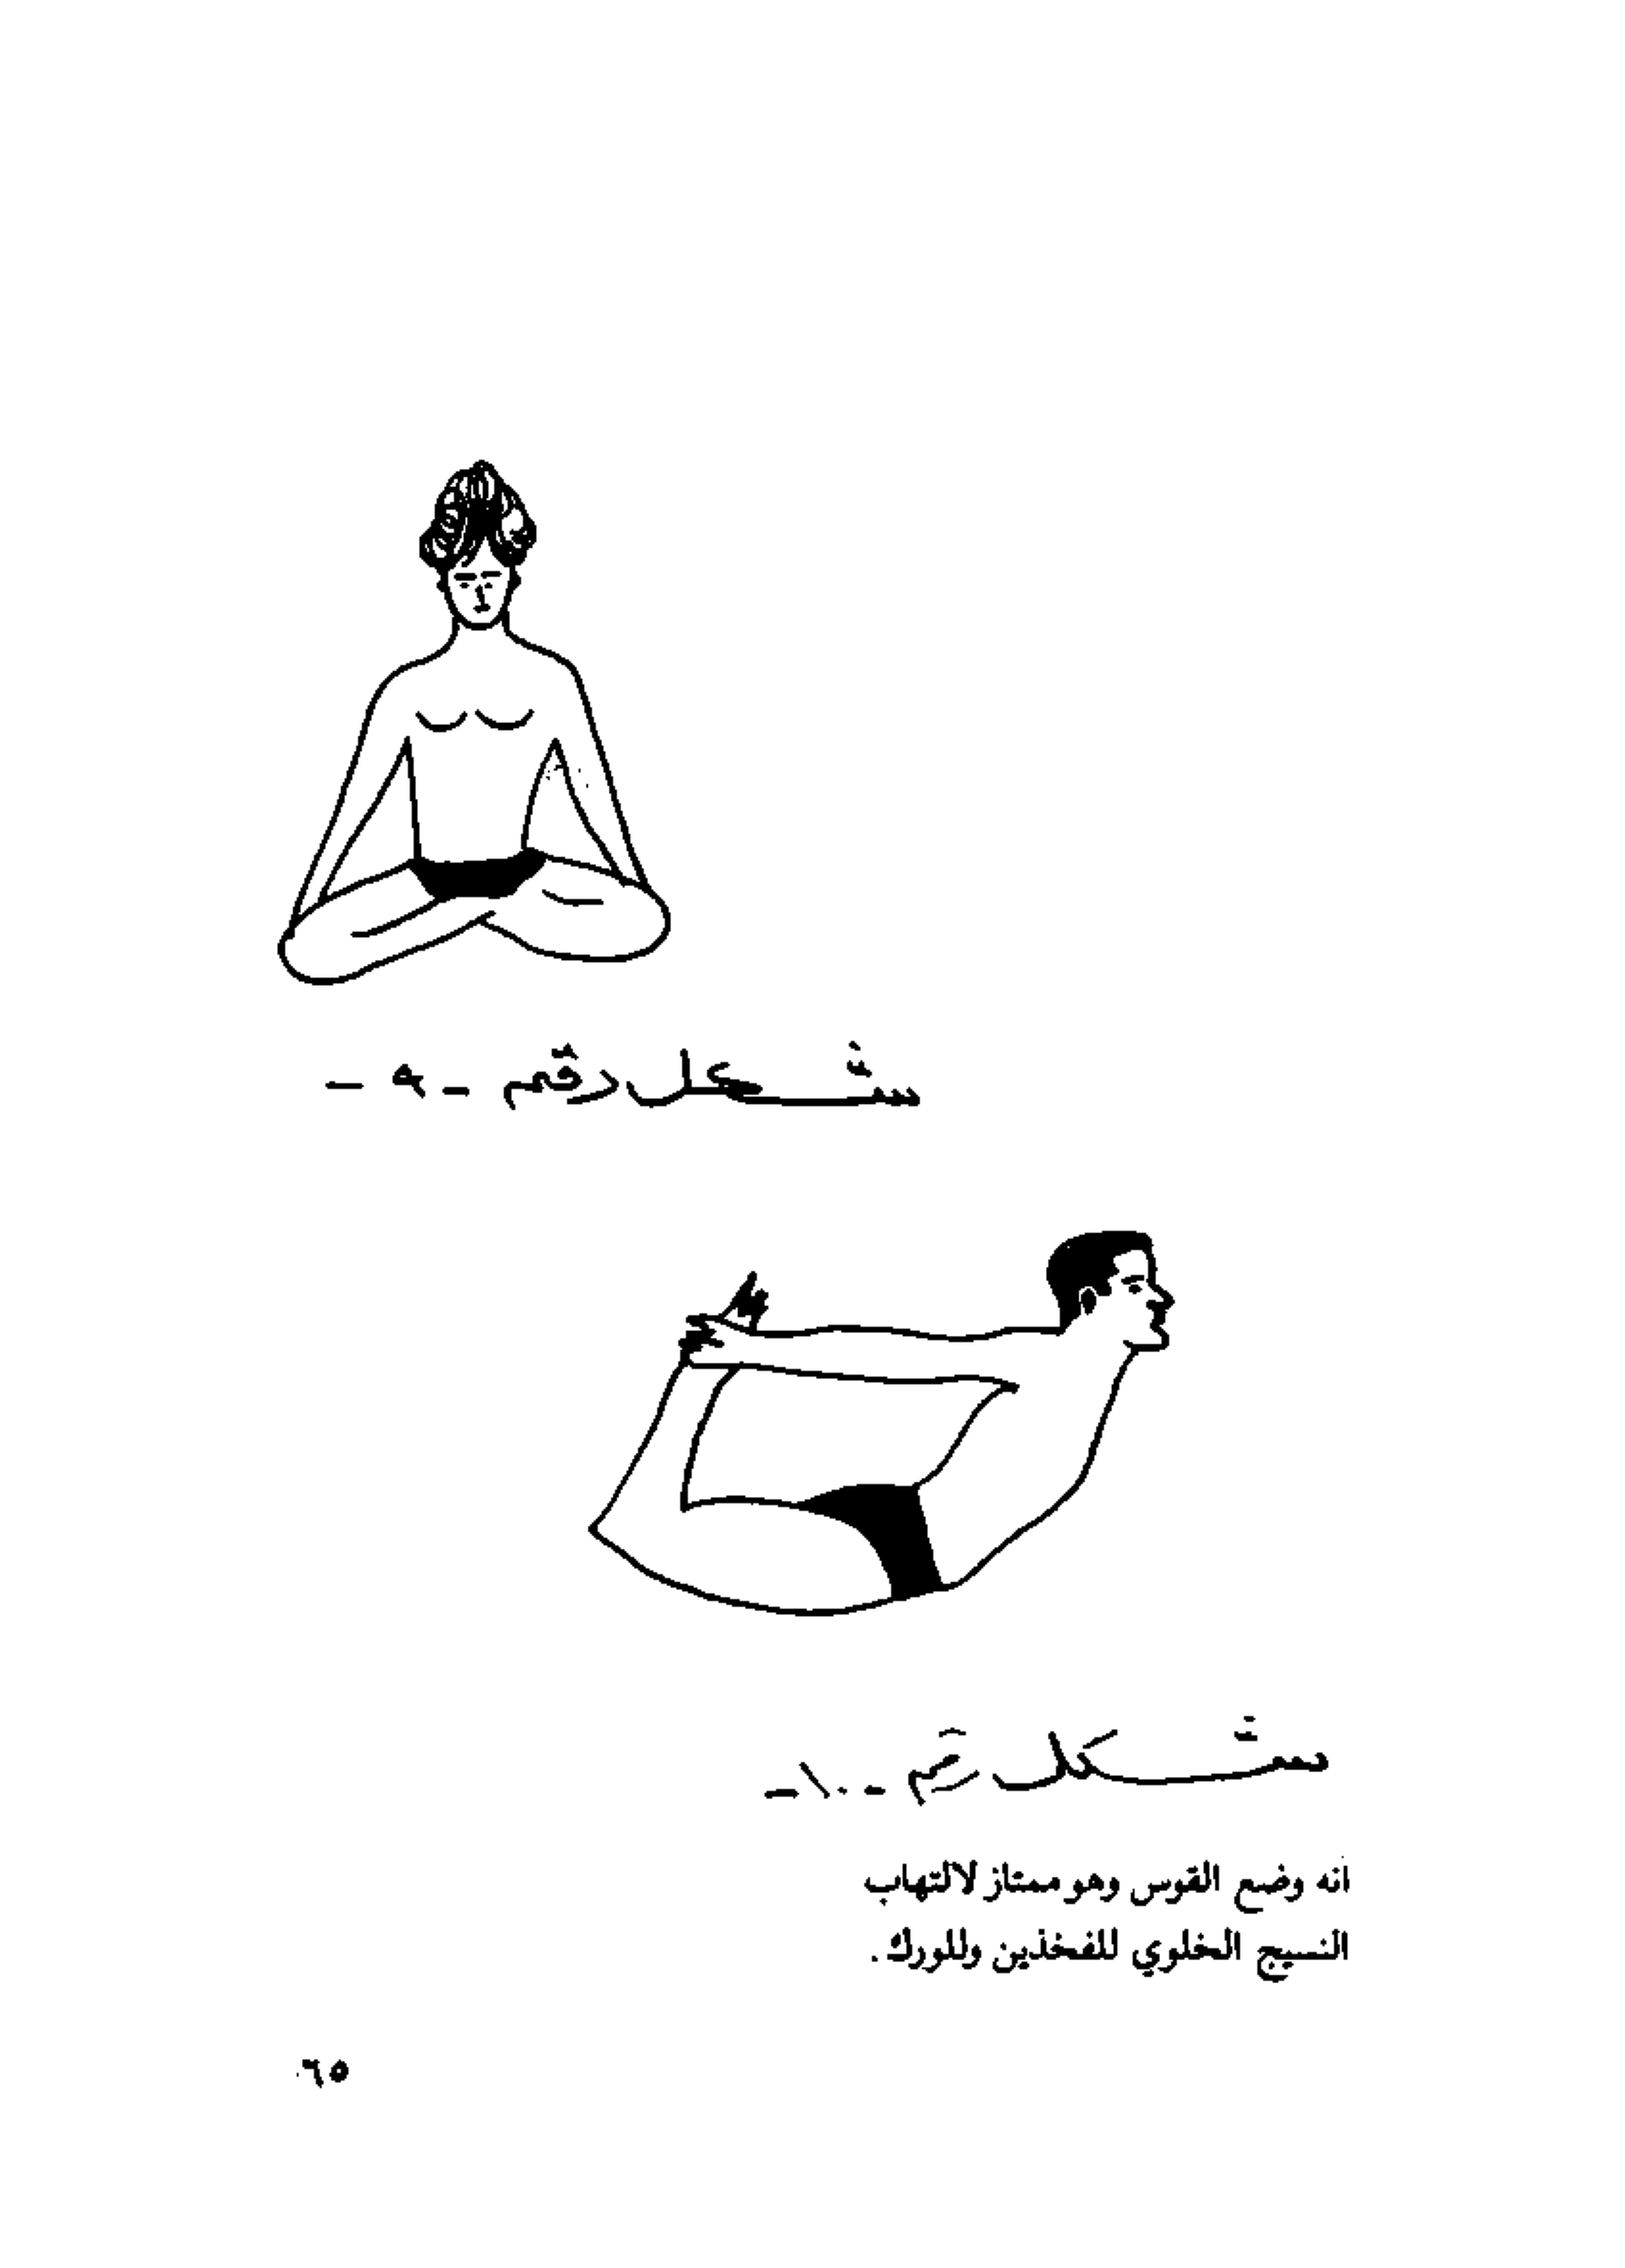 شكل رقم - ٩ -
شكل رقم - ١٠ -
انه وضع القوس وهو ممتاز لالتهاب
النسيج الخلوي للفخذين وللورك.
٦٥